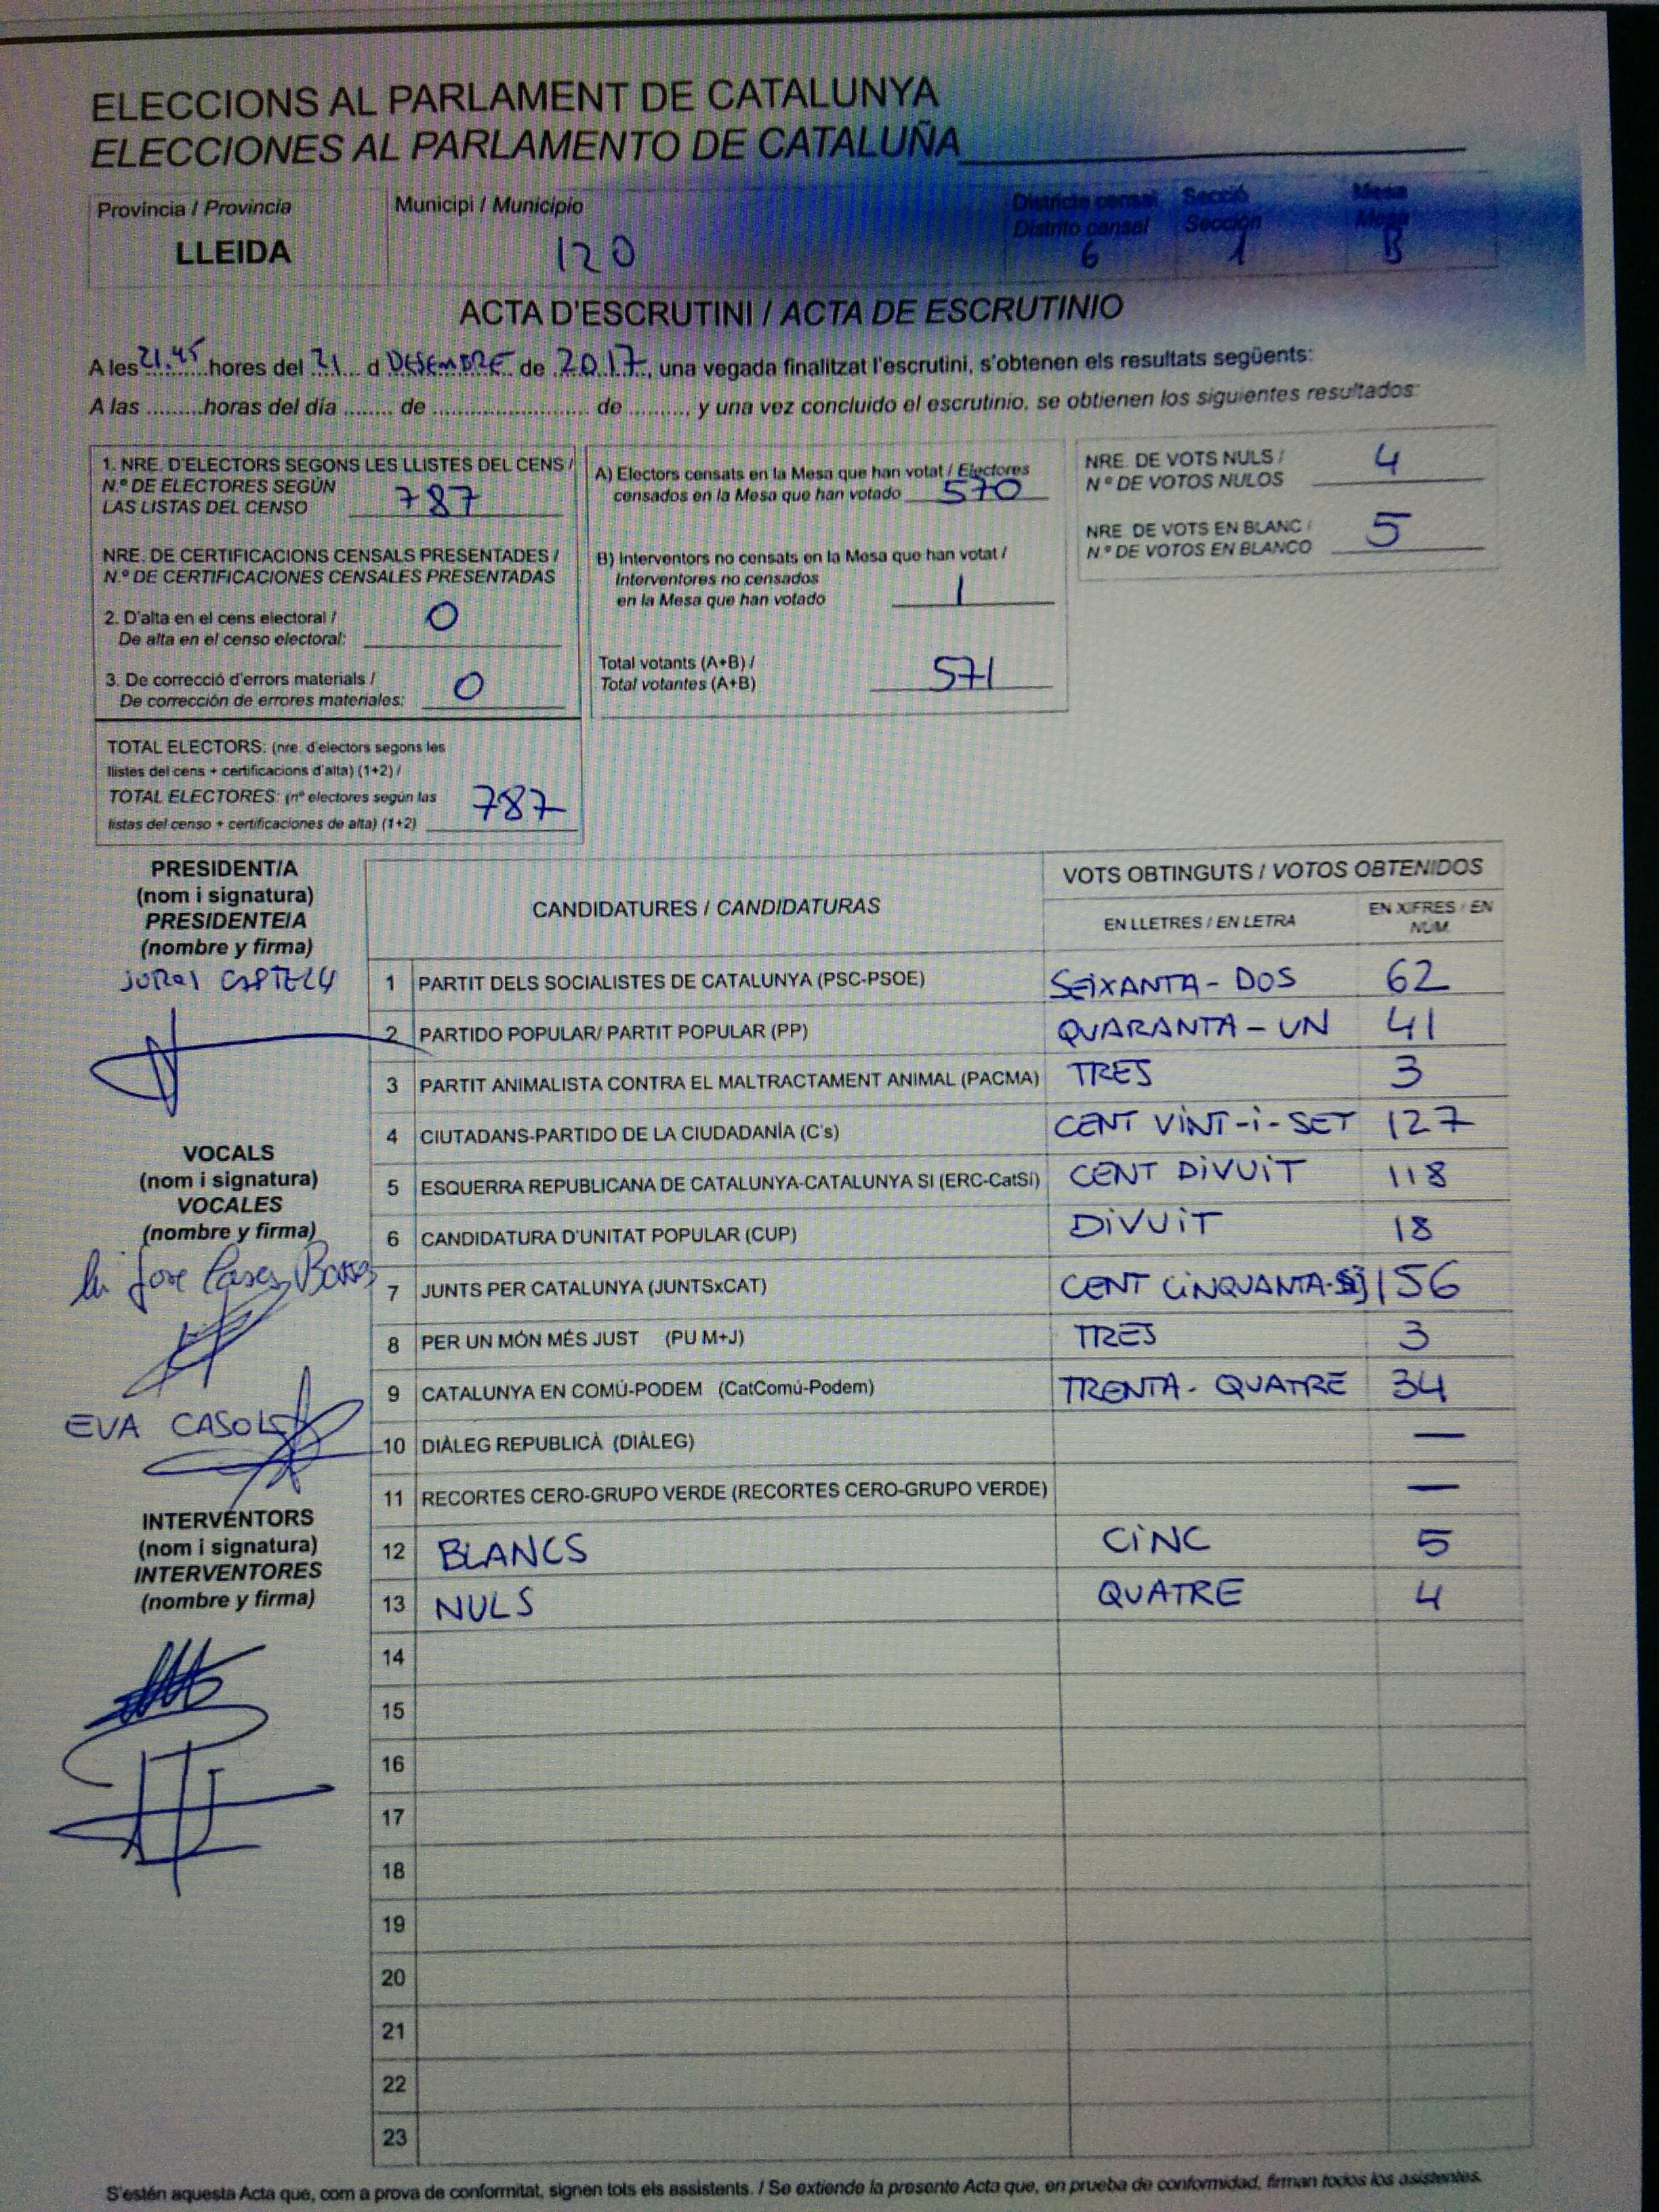 ELECCIONS AL PARLAMENT DE CATALUNYA
ELECCIONES AL PARLAMENTO DE CATALUÑA
Província / Provincia
LLEIDA
Municipi / Municipio
120
Districte censal
Distrito censal
6
Secció
Sección
1
Mesa
Mesa
B
ACTA D'ESCRUTINI / ACTA DE ESCRUTINIO
A les 21.45 hores del 21 d DESEMBRE de 2017, una vegada finalitzat l'escrutini, s'obtenen els resultats següents:
A las ......... horas del día ........ de ......................... de .........., y una vez concluido el escrutinio, se obtienen los siguientes resultados:
1. NRE. D'ELECTORS SEGONS LES LLISTES DEL CENS /
N.º DE ELECTORES SEGÚN
LAS LISTAS DEL CENSO 787
NRE. DE CERTIFICACIONS CENSALS PRESENTADES /
N.º DE CERTIFICACIONES CENSALES PRESENTADAS
2. D'alta en el cens electoral /
De alta en el censo electoral: 0
3. De correcció d'errors materials /
De corrección de errores materiales: 0
TOTAL ELECTORS: (nre. d'electors segons les
llistes del cens + certificacions d'alta) (1+2) /
TOTAL ELECTORES: (nº electores según las
listas del censo + certificaciones de alta) (1+2) 787
A) Electors censats en la Mesa que han votat / Electores
censados en la Mesa que han votado 570
B) Interventors no censats en la Mesa que han votat /
Interventores no censados
en la Mesa que han votado 1
Total votants (A+B) /
Total votantes (A+B) 571
NRE. DE VOTS NULS /
Nº DE VOTOS NULOS 4
NRE. DE VOTS EN BLANC /
N.º DE VOTOS EN BLANCO 5
PRESIDENT/A
(nom i signatura)
PRESIDENTE/A
(nombre y firma)
VOCALS
(nom i signatura)
VOCALES
(nombre y firma)
EVA CASOL
INTERVENTORS
(nom i signatura)
INTERVENTORES
(nombre y firma)
CANDIDATURES / CANDIDATURAS
VOTS OBTINGUTS / VOTOS OBTENIDOS
EN LLETRES / EN LETRA
EN XIFRES / EN
NÚM.
1 PARTIT DELS SOCIALISTES DE CATALUNYA (PSC-PSOE) SEIXANTA-DOS 62
2 PARTIDO POPULAR/ PARTIT POPULAR (PP) QUARANTA-UN 41
3 PARTIT ANIMALISTA CONTRA EL MALTRACTAMENT ANIMAL (PACMA) TRES 3
4 CIUTADANS-PARTIDO DE LA CIUDADANÍA (C's) CENT VINT-I-SET 127
5 ESQUERRA REPUBLICANA DE CATALUNYA-CATALUNYA SI (ERC-CatSí) CENT DIVUIT 118
6 CANDIDATURA D'UNITAT POPULAR (CUP) DIVUIT 18
7 JUNTS PER CATALUNYA (JUNTSxCAT) CENT CINQUANTA- 156
8 PER UN MÓN MÉS JUST (PU M+J) TRES 3
9 CATALUNYA EN COMÚ-PODEM (CatComú-Podem) TRENTA-QUATRE 34
10 DIÀLEG REPUBLICÀ (DIÀLEG) —
11 RECORTES CERO-GRUPO VERDE (RECORTES CERO-GRUPO VERDE) —
12 BLANCS CINC 5
13 NULS QUATRE 4
14
15
16
17
18
19
20
21
22
23
S'estén aquesta Acta que, com a prova de conformitat, signen tots els assistents. / Se extiende la presente Acta que, en prueba de conformidad, firman todos los asistentes.